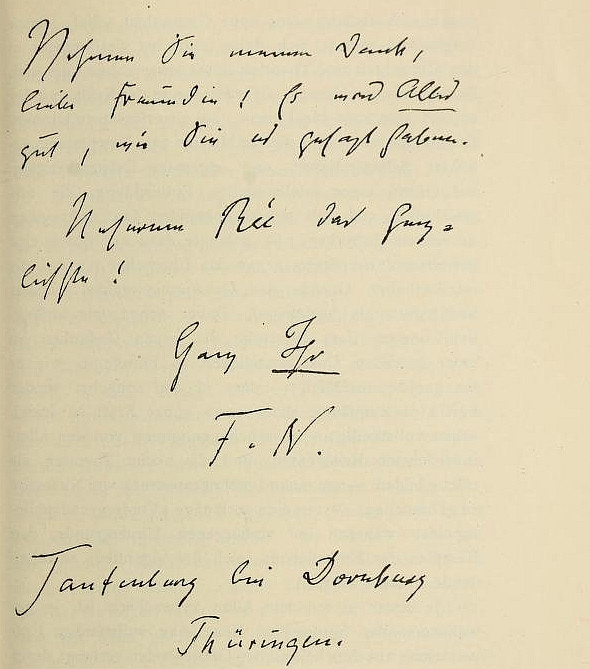 Nehmen Sie meinen Dank,
liebe Freundin! Es war Alles
gut, wie Sie es gesagt haben.
Unserem Rée das Herz=
lichste!
Ganz Ihr
F. N.
Tautenburg bei Dornburg
Thüringen.